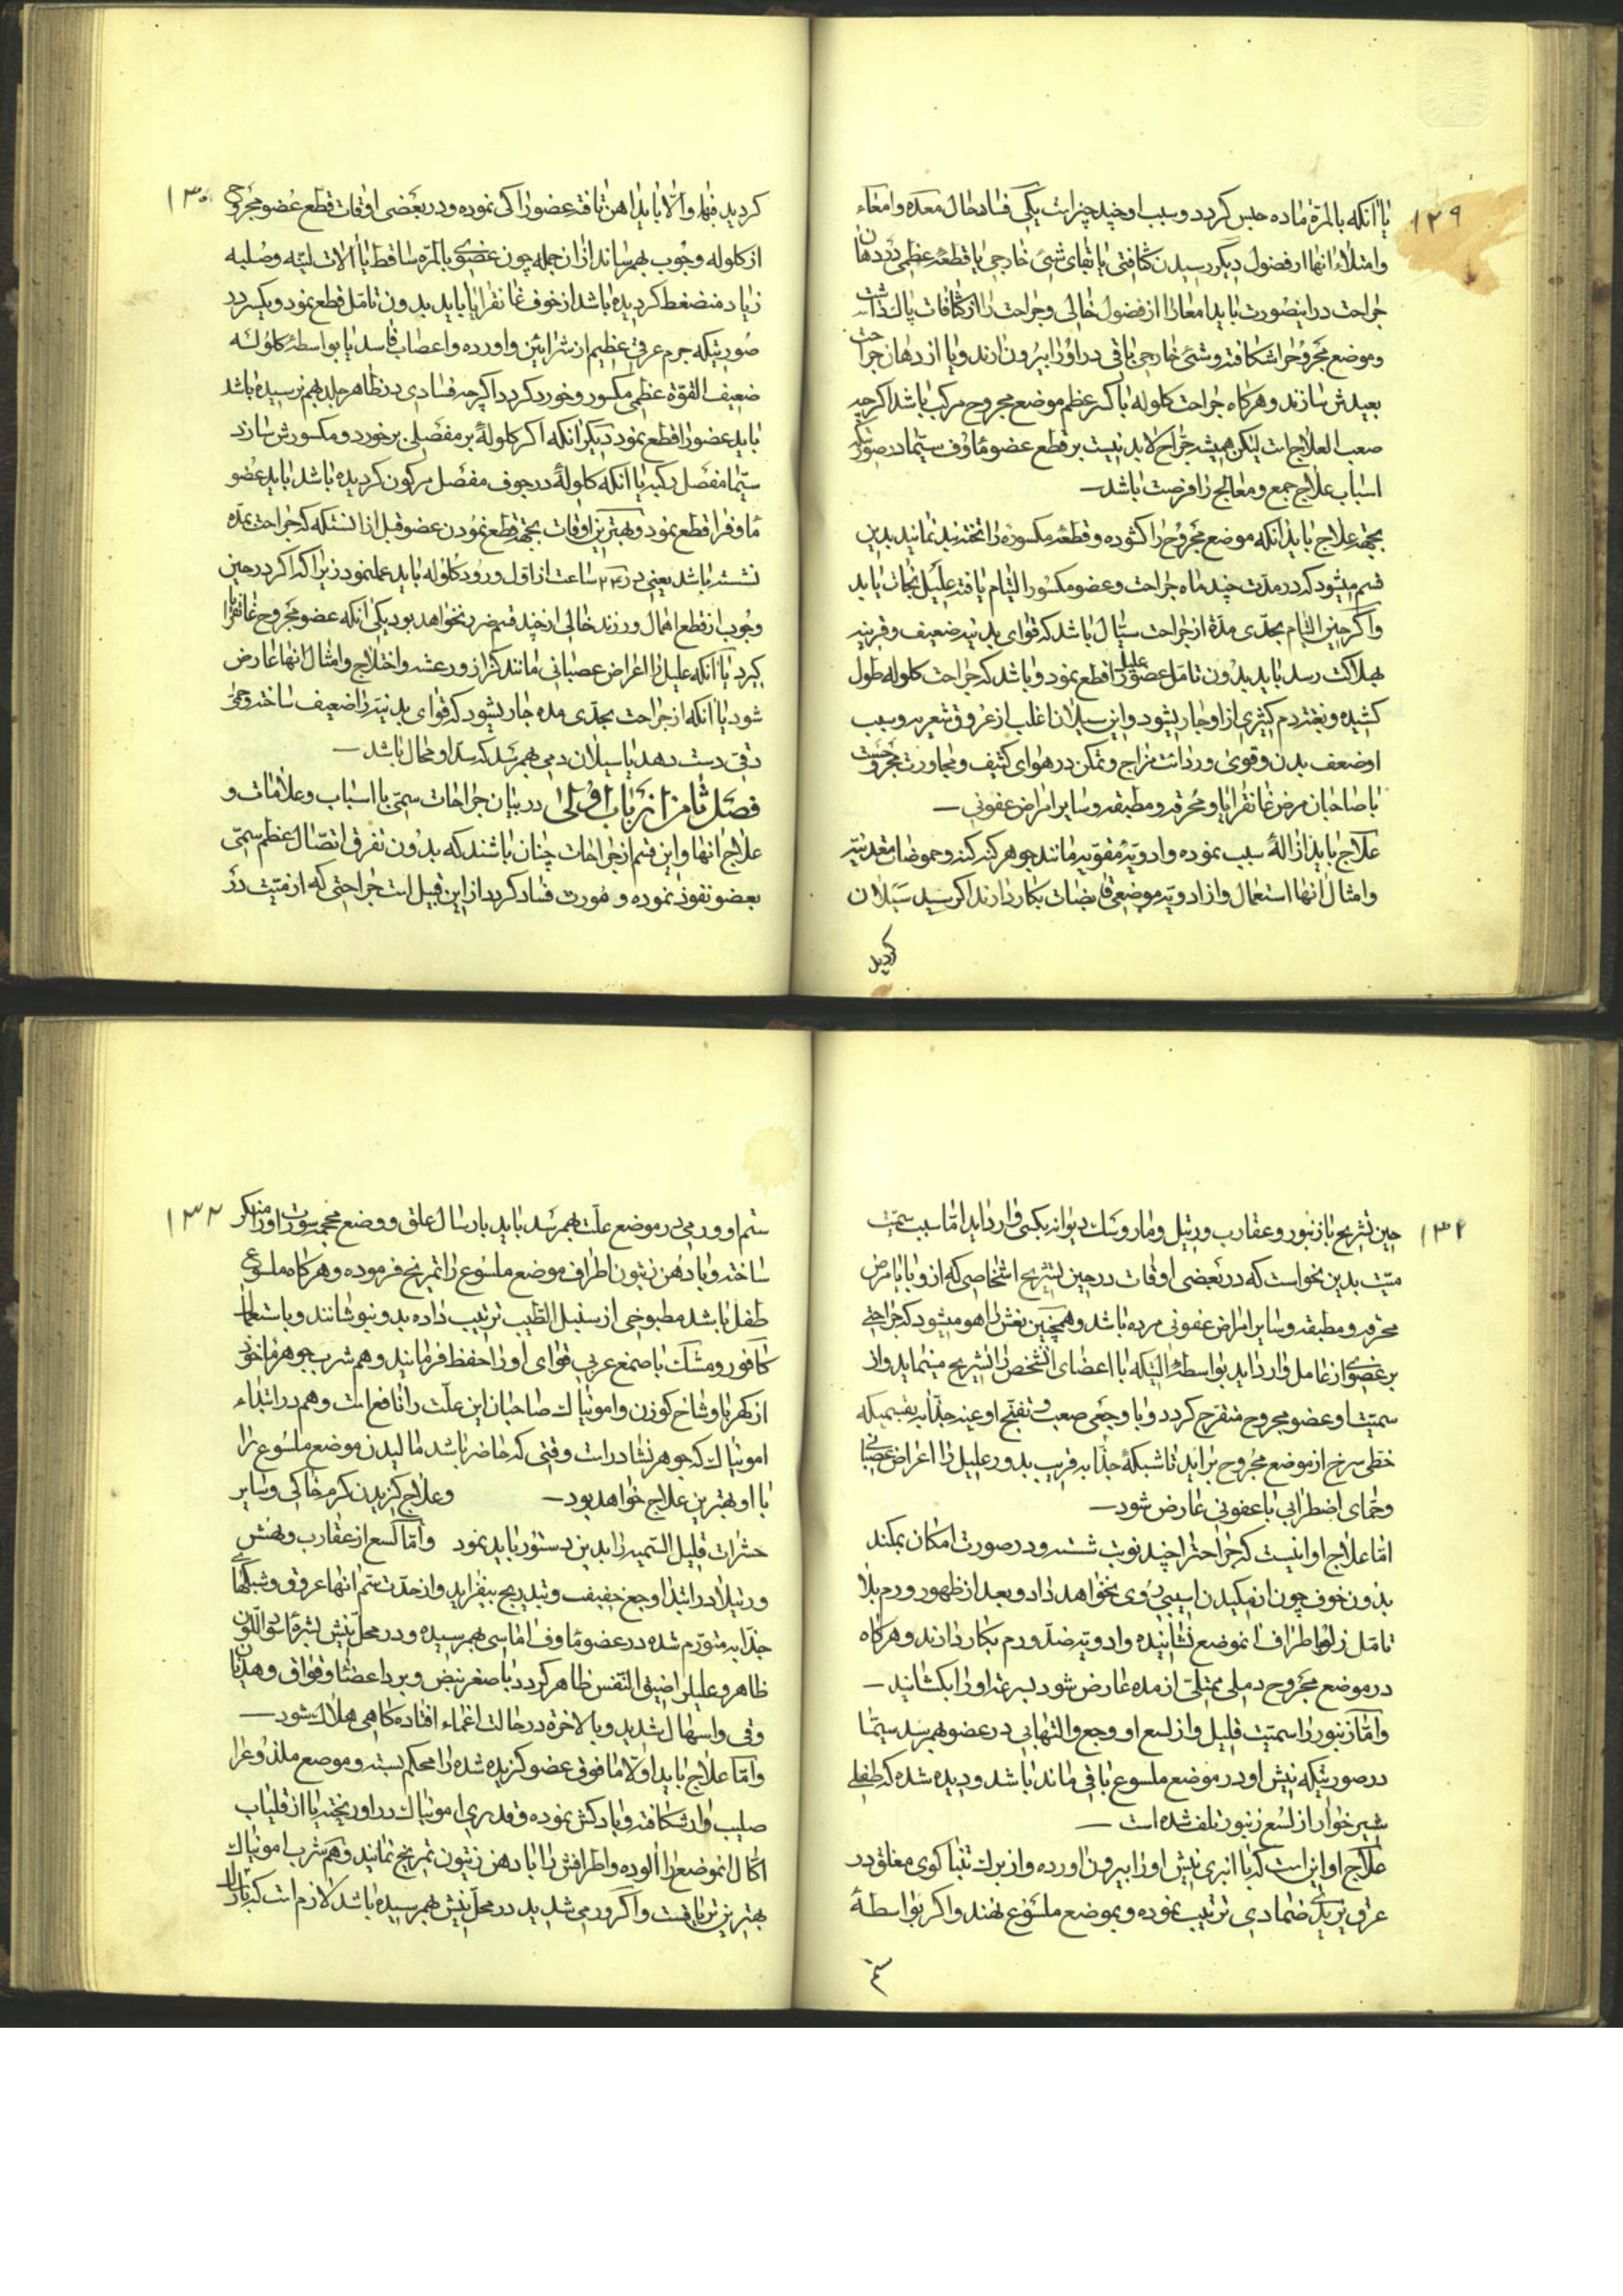 ۱۲۹
یا آنکه بالمرة ماده حبس گردد و سبب او چند چیز است یکی فساد حال معده و امعاء
و امتلاء انها از فضول دیگر رسیدن کثافتی یا بقای شیئ خارجی یا قطعهٔ عظمی در دهان
جراحت در اینصورت باید امعا را از فضول خالی و جراحت را از کثافات پاک داشت
و موضع مجروح را شکافته و شیئ خارجی باقی در او را بیرون ارند و یا از دهان جراحت
بعیدش سازند و هرکاه جراحت کلوله با کسر عظم موضع مجروح مرکب باشد اکرچه
صعب العلاج است لیکن همیشه جراح لابد نیست بر قطع عضو ماوف سیّما در صورتیکه
اسباب علاج جمع و معالج را فرصت باشد
بجهة علاج باید آنکه موضع مجروح را کشوده و قطعهٔ مکسوره را تخته بند نمایند بدین
قسم میشود که در مدت چند ماه جراحت و عضو مکسور التیام یافته علیل نجات یابد
و اگر حین التیام بحدّی مدّه از جراحت سیّال باشد که قوای بدنیه ضعیف و قرین
بهلاکت رسد باید بدون تامّل عضو علیل را قطع نمود و باشد که جراحت کلوله طول
کشیده و بغتة دم کثیری از او جاری شود و این سیلان اغلب از عروق شعریه و سبب
او ضعف بدن و قوی و ردائت مزاج و تمکن در هوای کثیف و مجاورت مجروحست
با صاحبان مرض غانقرایا و محرقه و مطبقه و سایر امراض عفونی
علاج باید ازالهٔ سبب نموده و ادویهٔ مقویه مانند جوهر کنه کنه و حموضات معدنیه
و امثال انها استعمال و از ادویه موضعی قابضات بکار دارند اکر سید سیلان
کردید
۱۳۰
کردید فبها و الّا باید اهن تافته عضو را کی نموده و در بعضی اوقات قطع عضو مجروح
از کلوله وجوب بهم رساند از ان جمله چون عضوی بالمرّه ساقط یا الات لینه و صلبه
زیاد منضغط کردیده باشد از خوف غانقرایا باید بدون تامّل قطع نمود و یکسر در
صورتیکه جرم عرقی عظیم از شرائین و اورده و اعصاب فاسد یا بواسطهٔ کلوله
ضعیف القوّة عظمی مکسور و خورد کردد اکرچه فسادی در ظاهر جلد بهم نرسیده باشد
باید عضو را قطع نمود دیکر انکه اکر کلولهٔ بر مفصلی برخورد و مکسورش سازد
سیّما مفصل رکبه یا انکه کلولهٔ در جوف مفصل مرکون کردیده باشد باید عضو
ماوف را قطع نمود و بهترین اوقات بجهة قطع نمودن عضو قبل از انستکه که جراحت بمدّه
نشسته باشد یعنی در ۲۴ ساعت از اول ورود کلوله باید عملنمود زیرا که اکر در حین
وجوب از قطع اهمال ورزند خالی از چند قسم ضرر نخواهد بود یکی انکه عضو مجروح غانقرایا
کیرد یا آنکه علیل را اعراض عصبانی مانند کزاز و رعشه و اختلاج و امثال انها عارض
شود یا آنکه از جراحت بحدّی مده جاری شود که قوای بدنیّه را ضعیف ساخته و حمّی
دقی دست دهد یا سیلان دمی بهم رسد که سدّ او محال باشد
فصل ثامن از باب اوّل در بیان جراحات سمیّ با اسباب و علامات و
علاج انها و این قسم از جراحات چنان باشند که بدون تفرق اتصال عظم سمیّ
بعضو نفوذ نموده و مورث فساد کردد از این قبیل است جراحتی که از میّت در
۱۳۱
حین تشریح یا از زنبور و عقارب و رتیل و مار و سک دیوانه بکسی وارد اید امّا سبب سمیّت
میّت بدین نحو است که در بعضی اوقات در حین تشریح اشخاصی که از وبا یا مرض
محرقه و مطبقه و سایر امراض عفونی مرده باشد و همچنین نعش اهو میشود که جراحتی
بر عضوی از عامل وارد اید بواسطهٔ التیکه با اعضای انشخص را تشریح مینماید و از
سمیّت او عضو مجروح متقرح کردد و با وجعی صعب و تفتیح اوعیه جذابه بقسمیکه
خطّی سرخ از موضع مجروح براید تا شبکهٔ جذابه قریب بدو و علیل را اعراض عصبانی
و حمّای اضطرابی با عفونی عارض شود
امّا علاج او اینست که جراحت را چند نوبت شسته و در صورت امکان بمکند
بدون خوف چون از مکیدن اسیبی روی نخواهد داد و بعد از ظهور ورم بلا
تامّل زلو باطراف انموضع نشانیده و ادویهٔ ضدّ ورم بکار دارند و هرکاه
در موضع مجروح دملی ممتلی از مده عارض شود بسرعة او را بکشانید
و امّا زنبور را سمیّت قلیل و از لسع او وجع و التهابی در عضو بهم رسد سیّما
در صورتیکه نیش او در موضع ملسوع باقی مانده باشد و دیده شده که طفلی
شیرخوار از لسع زنبور تلف شده است
علاج او این است که با انبری نیش او را بیرون اورده و از برک تنباکوی مغلق در
عرق تریک ضمادی ترتیب نموده و بموضع ملسوع نهند و اکر بواسطهٔ
سمّ
۱۳۲
سمّ او ورمی در موضع علّت بهم رسد باید بارسال علق و وضع محجمه سورت او را منکسر
ساخته و با دهن زیتون اطراف موضع ملسوع را تمریخ فرموده و هرکاه ملسوع
طفل باشد مطبوخی از سنبل الطیب ترتیب داده بدو بنوشانند و باستعمال
کافور و مشک با صمغ عربی قوای او را حفظ فرمایند و هم شرب جوهر ماخوذ
از کهربا و شاخ کوزن و امونیاک صاحبان این علّت را نافع است و هم در ابتداء
امونیاک که جوهر نشادر است وقتی که حاضر باشد مالیدن موضع ملسوع را
با او بهترین علاج خواهد بود و علاج کزیدن کرم خاکی و سایر
حشرات قلیل السّمیه را بدین دستور باید نمود و امّا لسع از عقارب و نهش
و رتیلا در ابتدا وجع خفیف و بتدریج بیفزاید و از حدّت سمّ انها عروق و شبکهای
جذابه متورّم شده در عضو ماوف اماسی بهم رسیده و در محلّ نیش بثرهٔ اسود اللّون
ظاهر و علیل را ضیق النّفس ظاهر کردد با صغر نبض و برد اعضا و فواق و هذیان
و قی و اسهال شدید و بالاخرة در حالت اغماء افتاده کاهی هلاک شود
و امّا علاج باید اولا مافوق عضو کزیده شده را محکم بسته و موضع ملدوغ را
صلیب وار شکافته و بادکش نموده و قدری امونیاک در او ریخته یا از قلیاب
اکّال انموضع را الوده و اطرافش را با دهن زیتون تمریخ نمایند و هم شرب امونیاک
بهترین تریاقیست و اکر ورمی شدید در محلّ نیش بهم رسیده باشد لازم است که بارسال